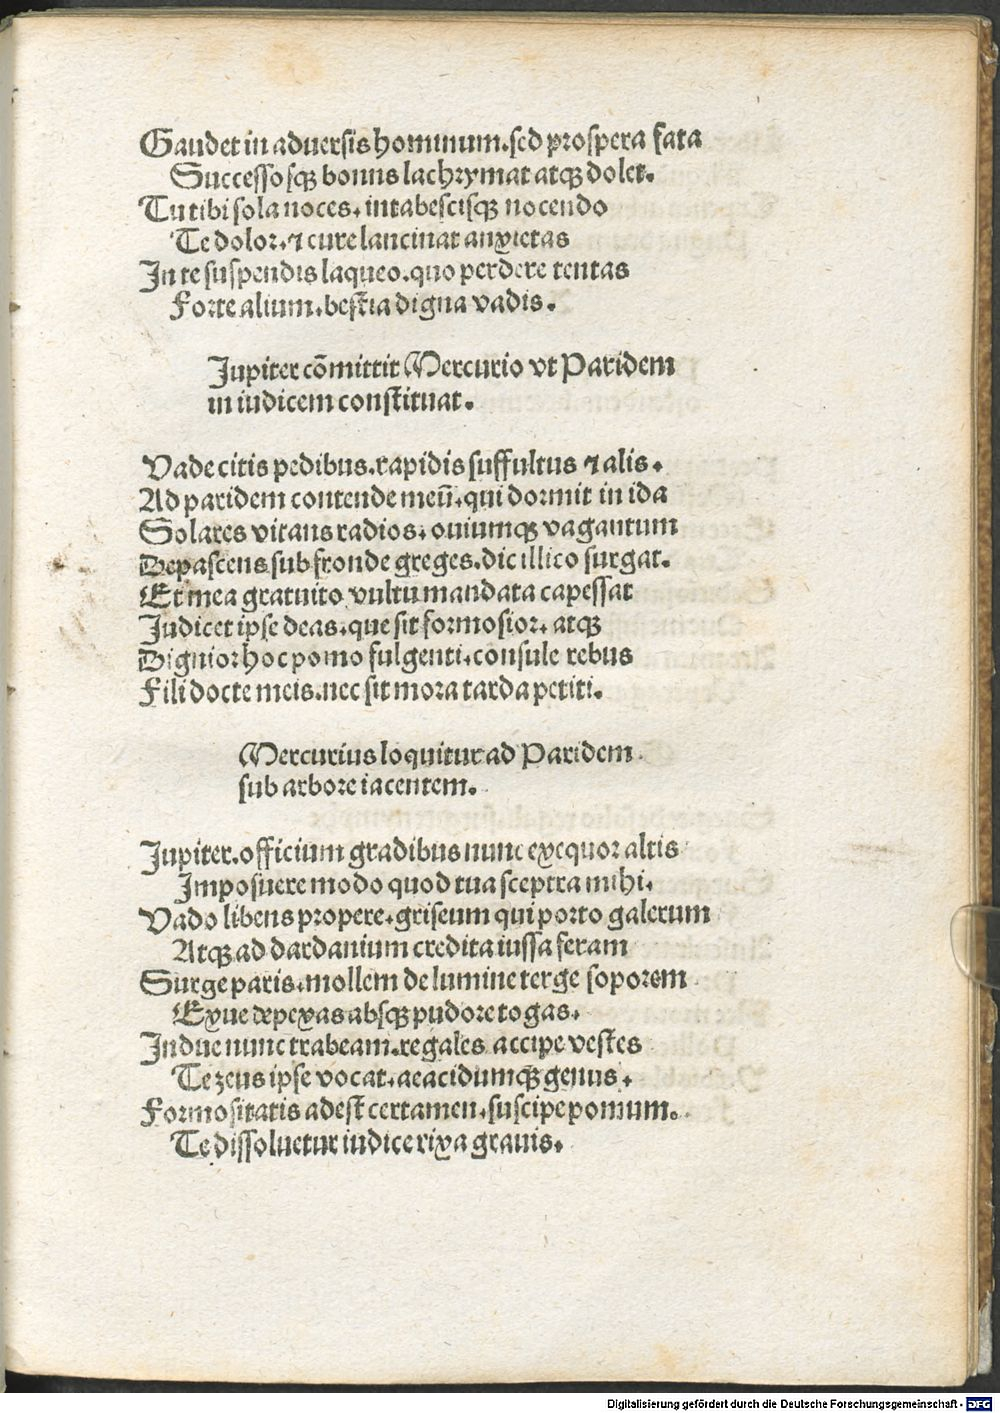 Gaudet in aduersis hominum. sed prospera fata
Successosqꝫ bonus lachrymat atqꝫ dolet.
Tu tibi sola noces. intabescisqꝫ nocendo
Te dolor. ⁊ cure lancinat anxietas
In te suspendis laqueo. quo perdere tentas
Forte alium. bestia digna vadis.
Jupiter cōmittit Mercurio vt Paridem
in iudicem constituat.
Vade citis pedibus. rapidis suffultus ⁊ alis.
Ad paridem contende meū. qui dormit in ida
Solares vitans radios. ouiumqꝫ vagantum
Depascens sub fronde greges. dic illico surgat.
Et mea gratuito vultu mandata capessat
Judicet ipse deas. que sit formosior. atqꝫ
Dignior hoc pomo fulgenti. consule rebus
Fili docte meis. nec sit mora tarda petiti.
Mercurius loquitur ad Paridem
sub arbore iacentem.
Jupiter. officium gradibus nunc exequor altis
Imposuere modo quod tua sceptra mihi.
Vado libens propere. griseum qui porto galerum
Atqꝫ ad dardanium credita iussa feram
Surge paris. mollem de lumine terge soporem
Exue depexas absqꝫ pudore togas.
Indue nunc trabeam. regales accipe vestes
Te zeus ipse vocat. aeacidumqꝫ genus.
Formositatis adest certamen. suscipe pomum.
Te dissoluetur iudice rixa grauis.
Digitalisierung gefördert durch die Deutsche Forschungsgemeinschaft - DFG